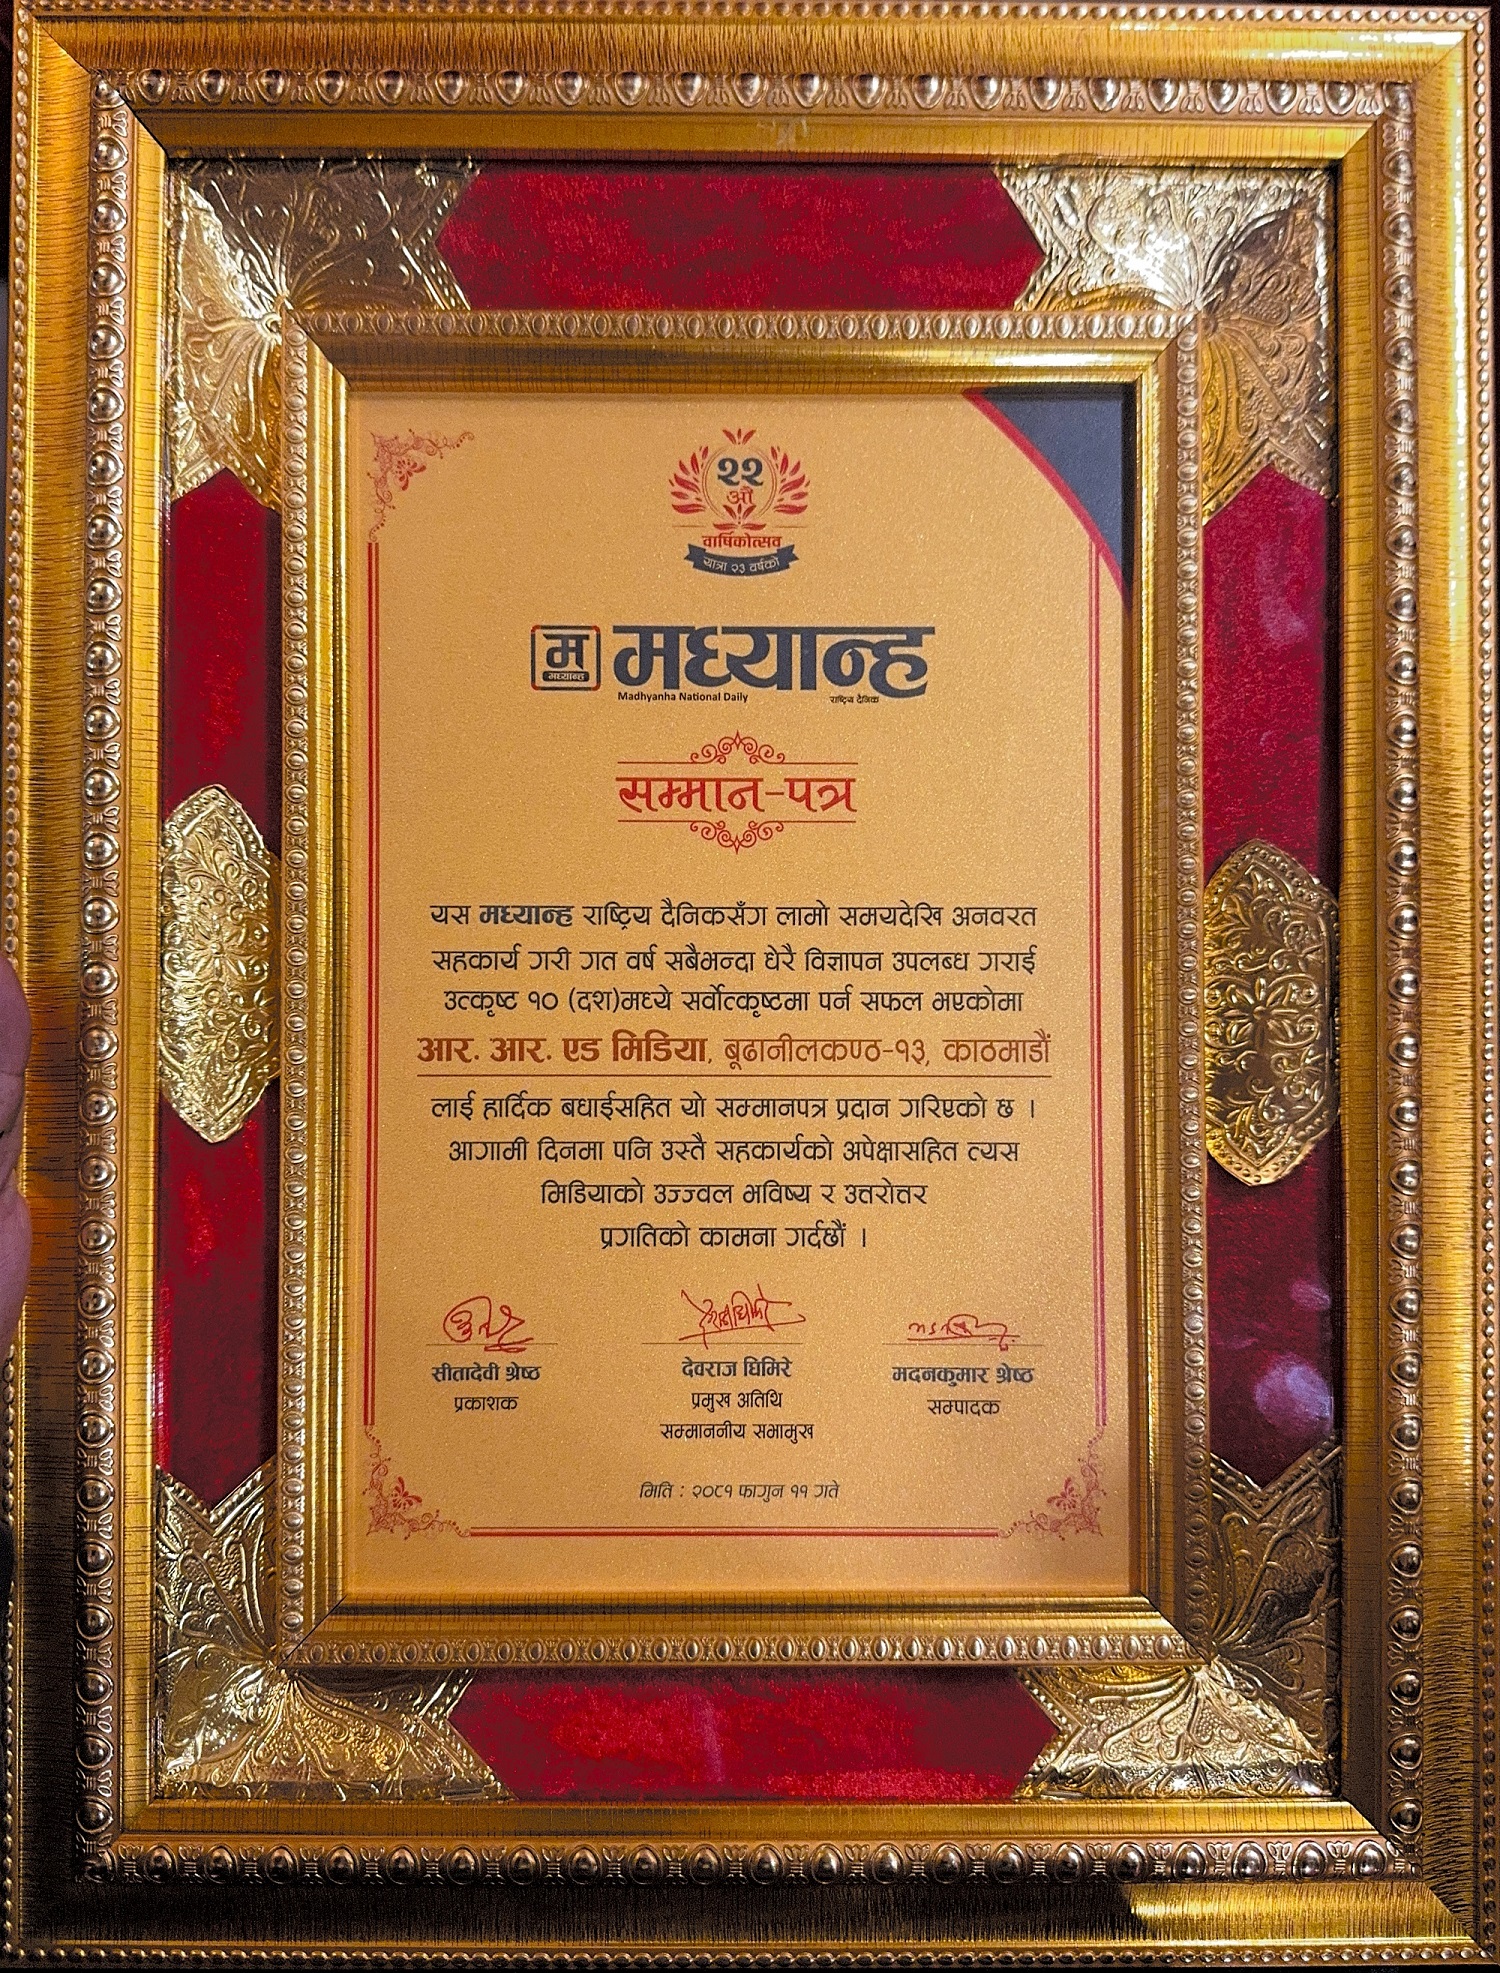 २२
औं
वार्षिकोत्सव
यात्रा २३ वर्षको
म
मध्यान्ह
मध्यान्ह
Madhyanha National Daily
राष्ट्रिय दैनिक
सम्मान-पत्र
यस मध्यान्ह राष्ट्रिय दैनिकसँग लामो समयदेखि अनवरत
सहकार्य गरी गत वर्ष सबैभन्दा धेरै विज्ञापन उपलब्ध गराई
उत्कृष्ट १० (दश)मध्ये सर्वोत्कृष्टमा पर्न सफल भएकोमा
आर. आर. एड मिडिया, बूढानीलकण्ठ-१३, काठमाडौं
लाई हार्दिक बधाईसहित यो सम्मानपत्र प्रदान गरिएको छ ।
आगामी दिनमा पनि उस्तै सहकार्यको अपेक्षासहित त्यस
मिडियाको उज्ज्वल भविष्य र उत्तरोत्तर
प्रगतिको कामना गर्दछौं ।
सीतादेवी श्रेष्ठ
प्रकाशक
देवराज घिमिरे
प्रमुख अतिथि
सम्माननीय सभामुख
मदनकुमार श्रेष्ठ
सम्पादक
मिति : २०८१ फागुन ११ गते